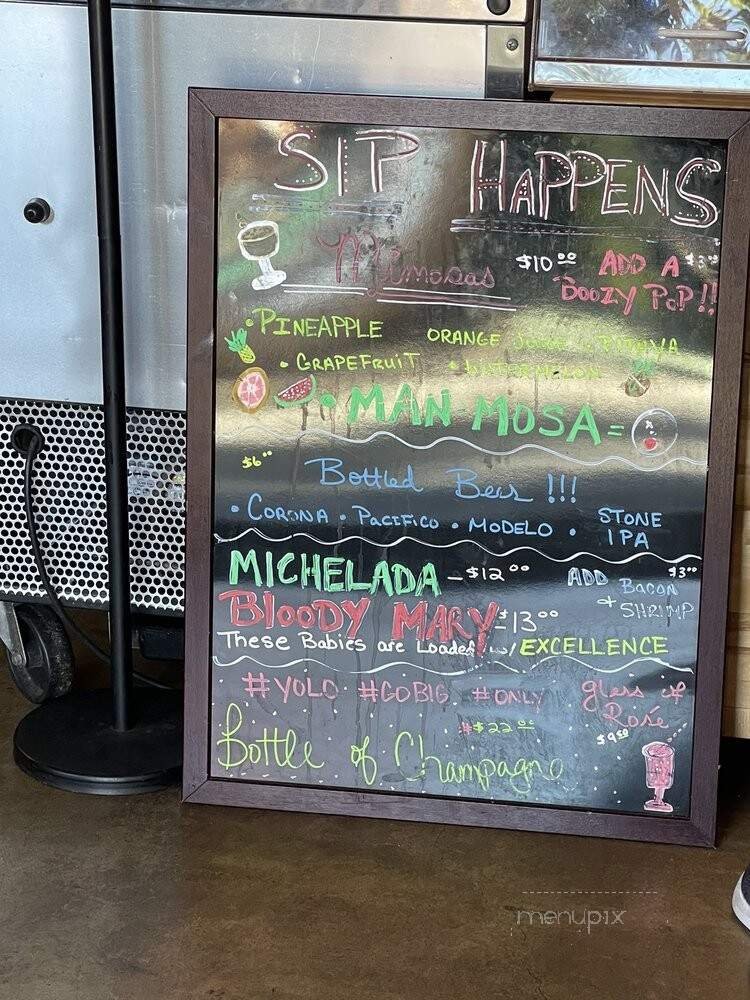 SIP HAPPENS
Mimosas $10.00 ADD A $3.00
BOOZY POP!!
• PINEAPPLE ORANGE JUICE
• GRAPEFRUIT • WATERMELON
• MAN MOSA =
$6.00
Bottled Beer !!!
• CORONA • PACIFICO • MODELO • STONE
IPA
MICHELADA - $12.00 ADD BACON $3.00
+ SHRIMP
BLOODY MARY $13.00
These Babies are Loaded w/ EXCELLENCE
#YOLO #GOBIG #ONLY glass of
Rosé
$22.00
$9.50
Bottle of Champagne
menupix